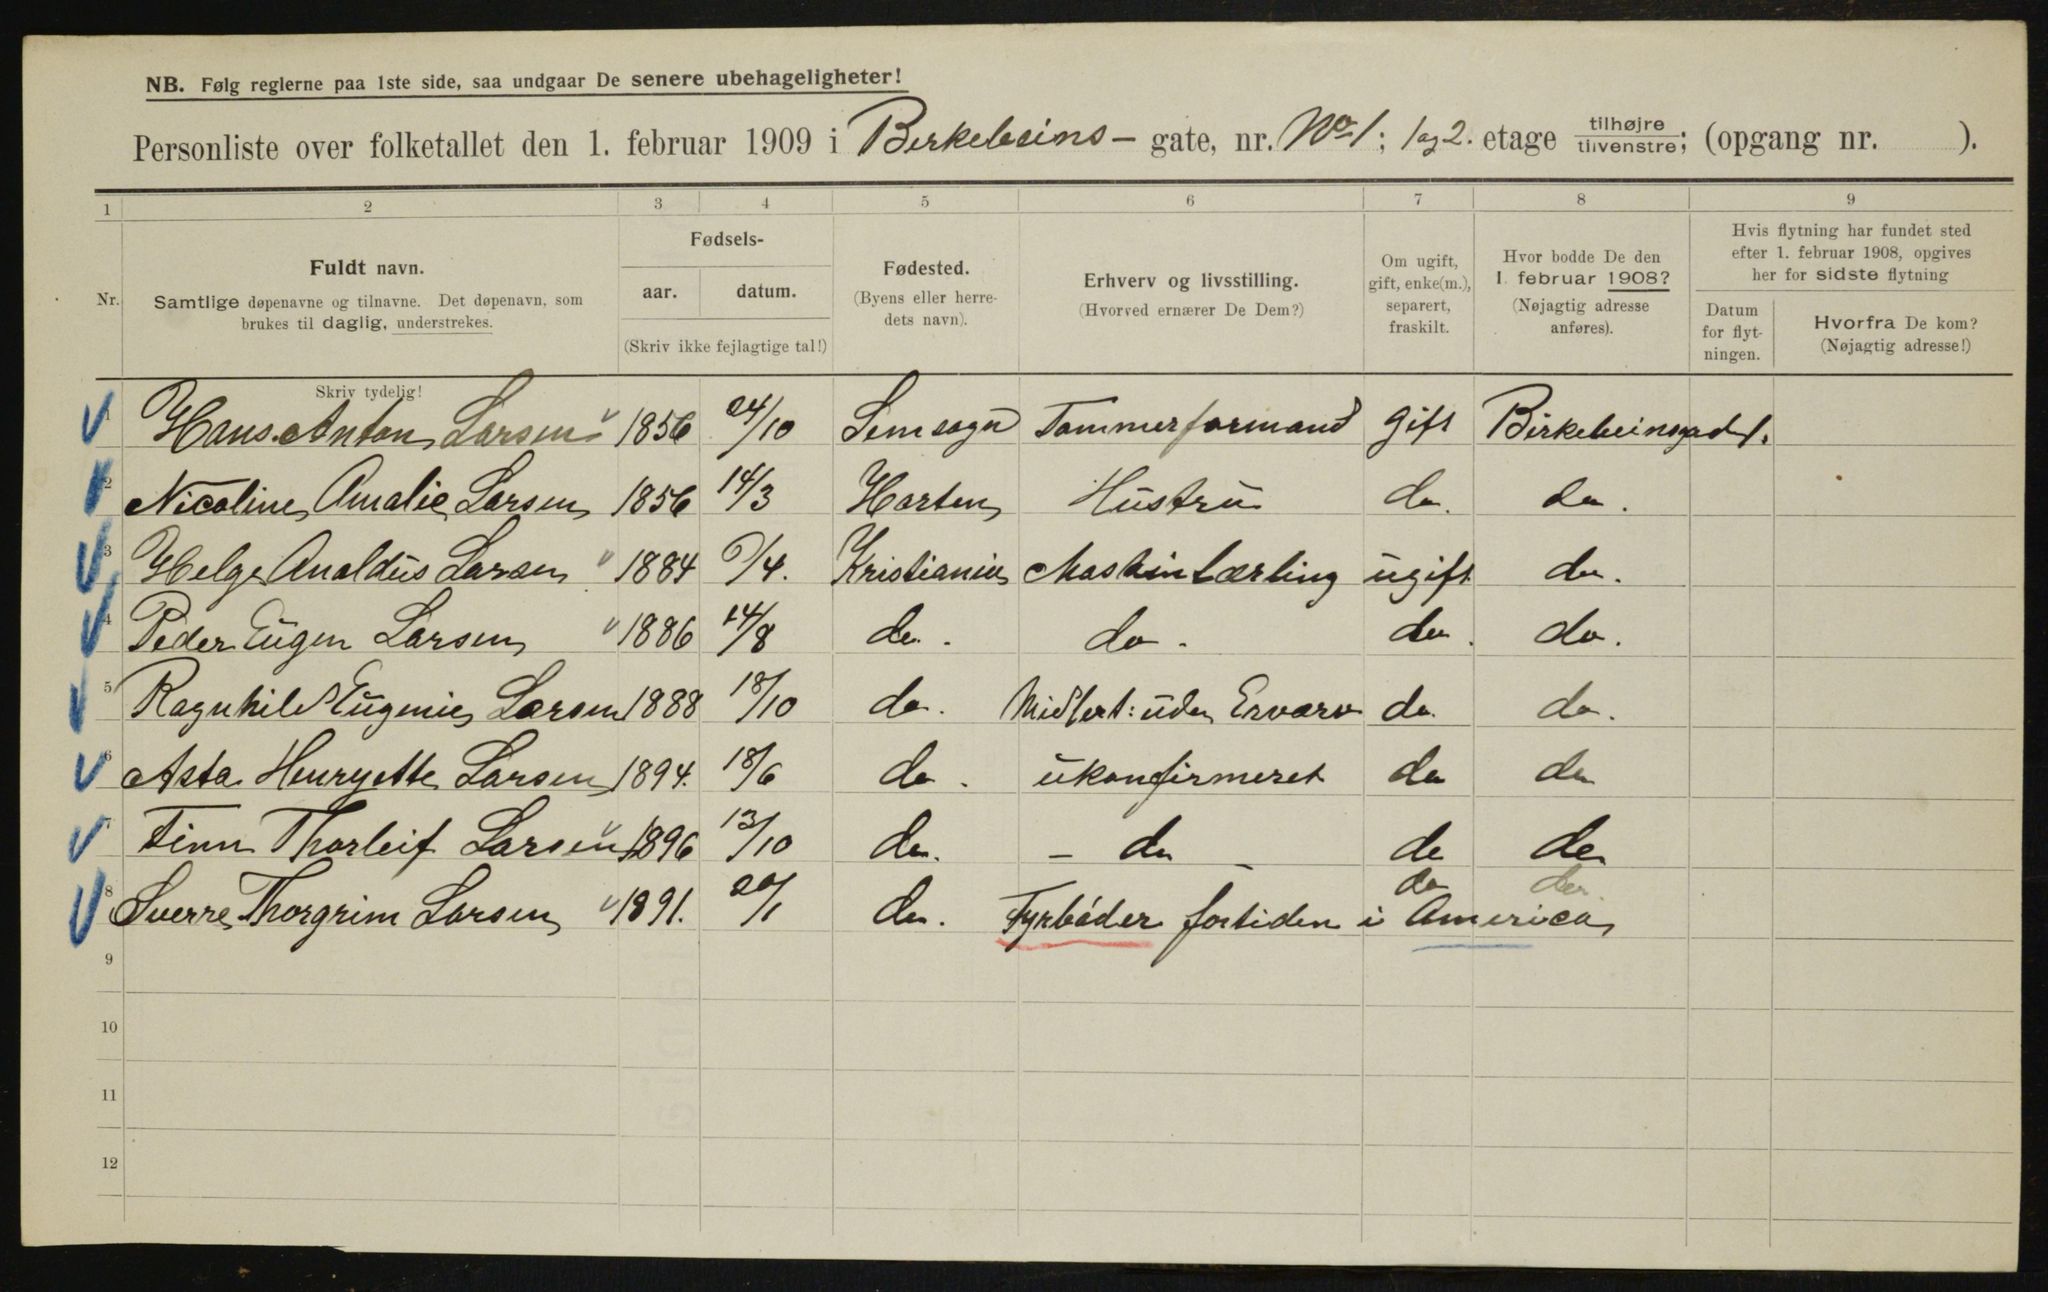 NB. Følg reglerne paa 1ste side, saa undgaar De senere ubehageligheter!
Personliste over folketallet den 1. februar 1909 i Birkebeins- gate, nr. No 1; 1 og 2. etage tilhøjre/tilvenstre; (opgang nr. ).
1 2 3 4 5 6 7 8 9
Nr. Fuldt navn. Samtlige døpenavne og tilnavne. Det døpenavn, som brukes til daglig, understrekes.
Fødsels- aar. datum. (Skriv ikke fejlagtige tal!)
Fødested. (Byens eller herredets navn).
Erhverv og livsstilling. (Hvorved ernærer De Dem?)
Om ugift, gift, enke(m.), separert, fraskilt.
Hvor bodde De den 1. februar 1908? (Nøjagtig adresse anføres).
Hvis flytning har fundet sted efter 1. februar 1908, opgives her for sidste flytning
Datum for flytningen. Hvorfra De kom? (Nøjagtig adresse!)
Skriv tydelig!
1 Hans Anton Larsen 1856 24/10 Semsogn Tommerformand gift Birkebeinsgad 1.
2 Nicoline Amalie Larsen 1856 14/3 Horten Hustru do. do.
3 Helge Larsen 1884 /4. Kristiania Maskinlærling ugift do.
4 Peder Eugen Larsen 1886 14/8 do. do. do. do.
5 Ragnhild Eugenie Larsen 1888 18/10 do. Midlert: uden Erværv do. do.
6 Asta Henryette Larsen 1894. 18/6 do. ukonfirmeret do do
7 Finn Thorleif Larsen 1896 13/10 do. - do - do do
8 Sverre Thorgrim Larsen 1891. 20/1 do. Fyrbøder fortiden i America do do
9
10
11
12